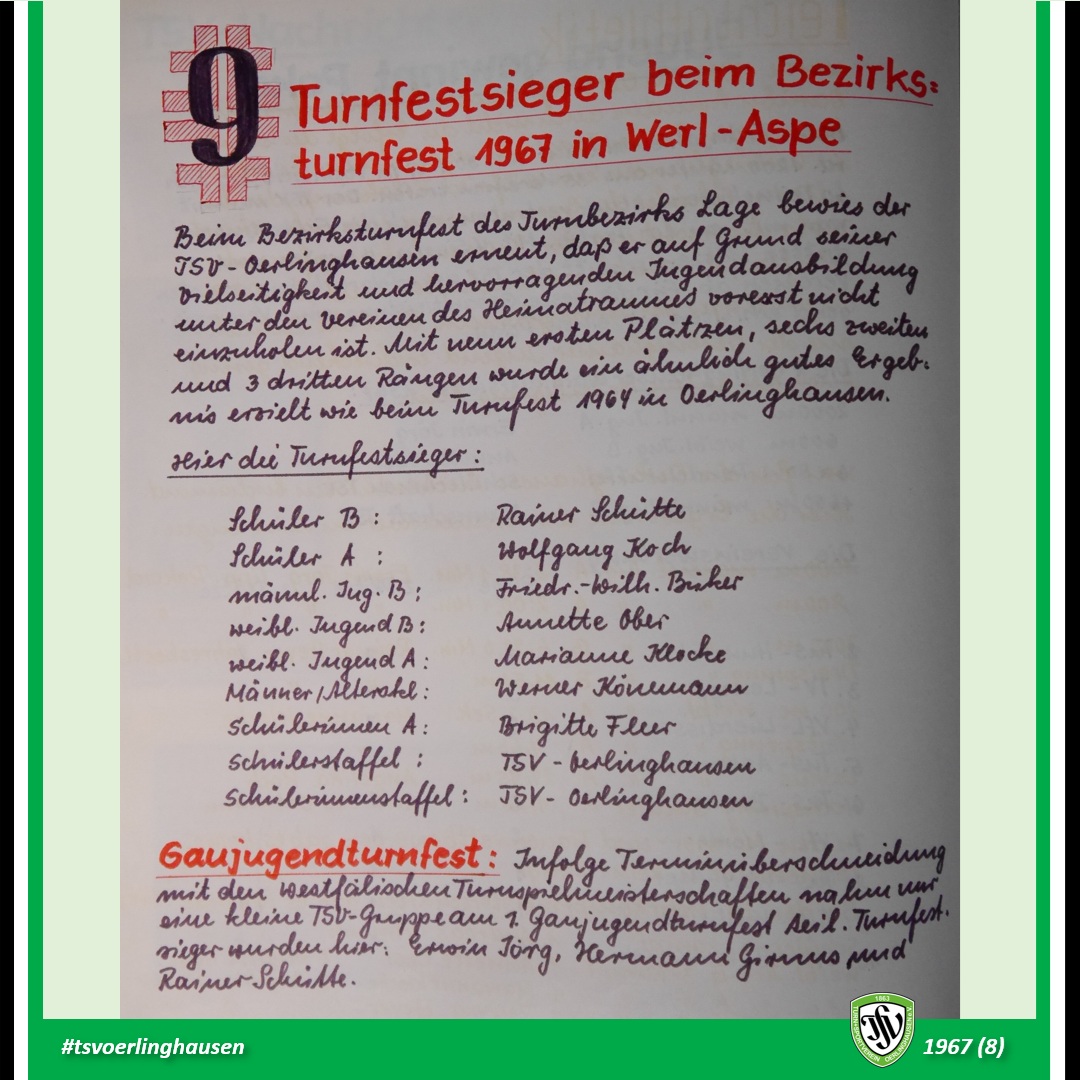 9 Turnfestsieger beim Bezirks=
turnfest 1967 in Werl-Aspe
Beim Bezirksturnfest des Turnbezirks Lage bewies der
TSV-Oerlinghausen erneut, daß er auf Grund seiner
Vielseitigkeit und hervorragenden Jugendausbildung
unter den Vereinen des Heimatraumes vorerst nicht
einzuholen ist. Mit neun ersten Plätzen, sechs zweiten
und 3 dritten Rängen wurde ein ähnlich gutes Ergeb-
nis erzielt wie beim Turnfest 1964 in Oerlinghausen.
Hier die Turnfestsieger:
Schüler B: Rainer Schütte
Schüler A: Wolfgang Koch
männl. Jug. B: Friedr.-Wilh. Büker
weibl. Jugend B: Annette Ober
weibl. Jugend A: Marianne Klocke
Männer/Alterskl: Werner Könemann
Schülerinnen A: Brigitte Fleer
Schülerstaffel: TSV-Oerlinghausen
Schülerinnenstaffel: TSV-Oerlinghausen
Gaujugendturnfest: Infolge Terminüberschneidung
mit den westfälischen Turnspielmeisterschaften nahm nur
eine kleine TSV-Gruppe am 1. Gaujugendturnfest teil. Turnfest-
sieger wurden hier: Erwin Jörg, Hermann Girnus und
Rainer Schütte.
1863
TSV
TURN-SPORTVEREIN OERLINGHAUSEN
#tsvoerlinghausen
1967 (8)